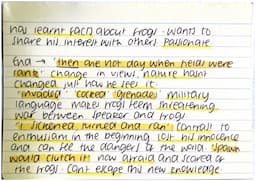 has learnt facts about frogs - wants to
share his interest with others passionate
End → 'then one hot day when fields were
rank' change in views, nature hasnt
changed just how he sees it.
'invaded' 'cocked' 'grenades' military
language makes frogs seem threatening
war between speaker and frogs
'I sickened, turned and ran' contrast to
enthusiasm in the beginning lost his innocence
and can see the dangers of the world 'spawn
would clutch it' now afraid and scared of
the frogs. Cant escape this new knowledge